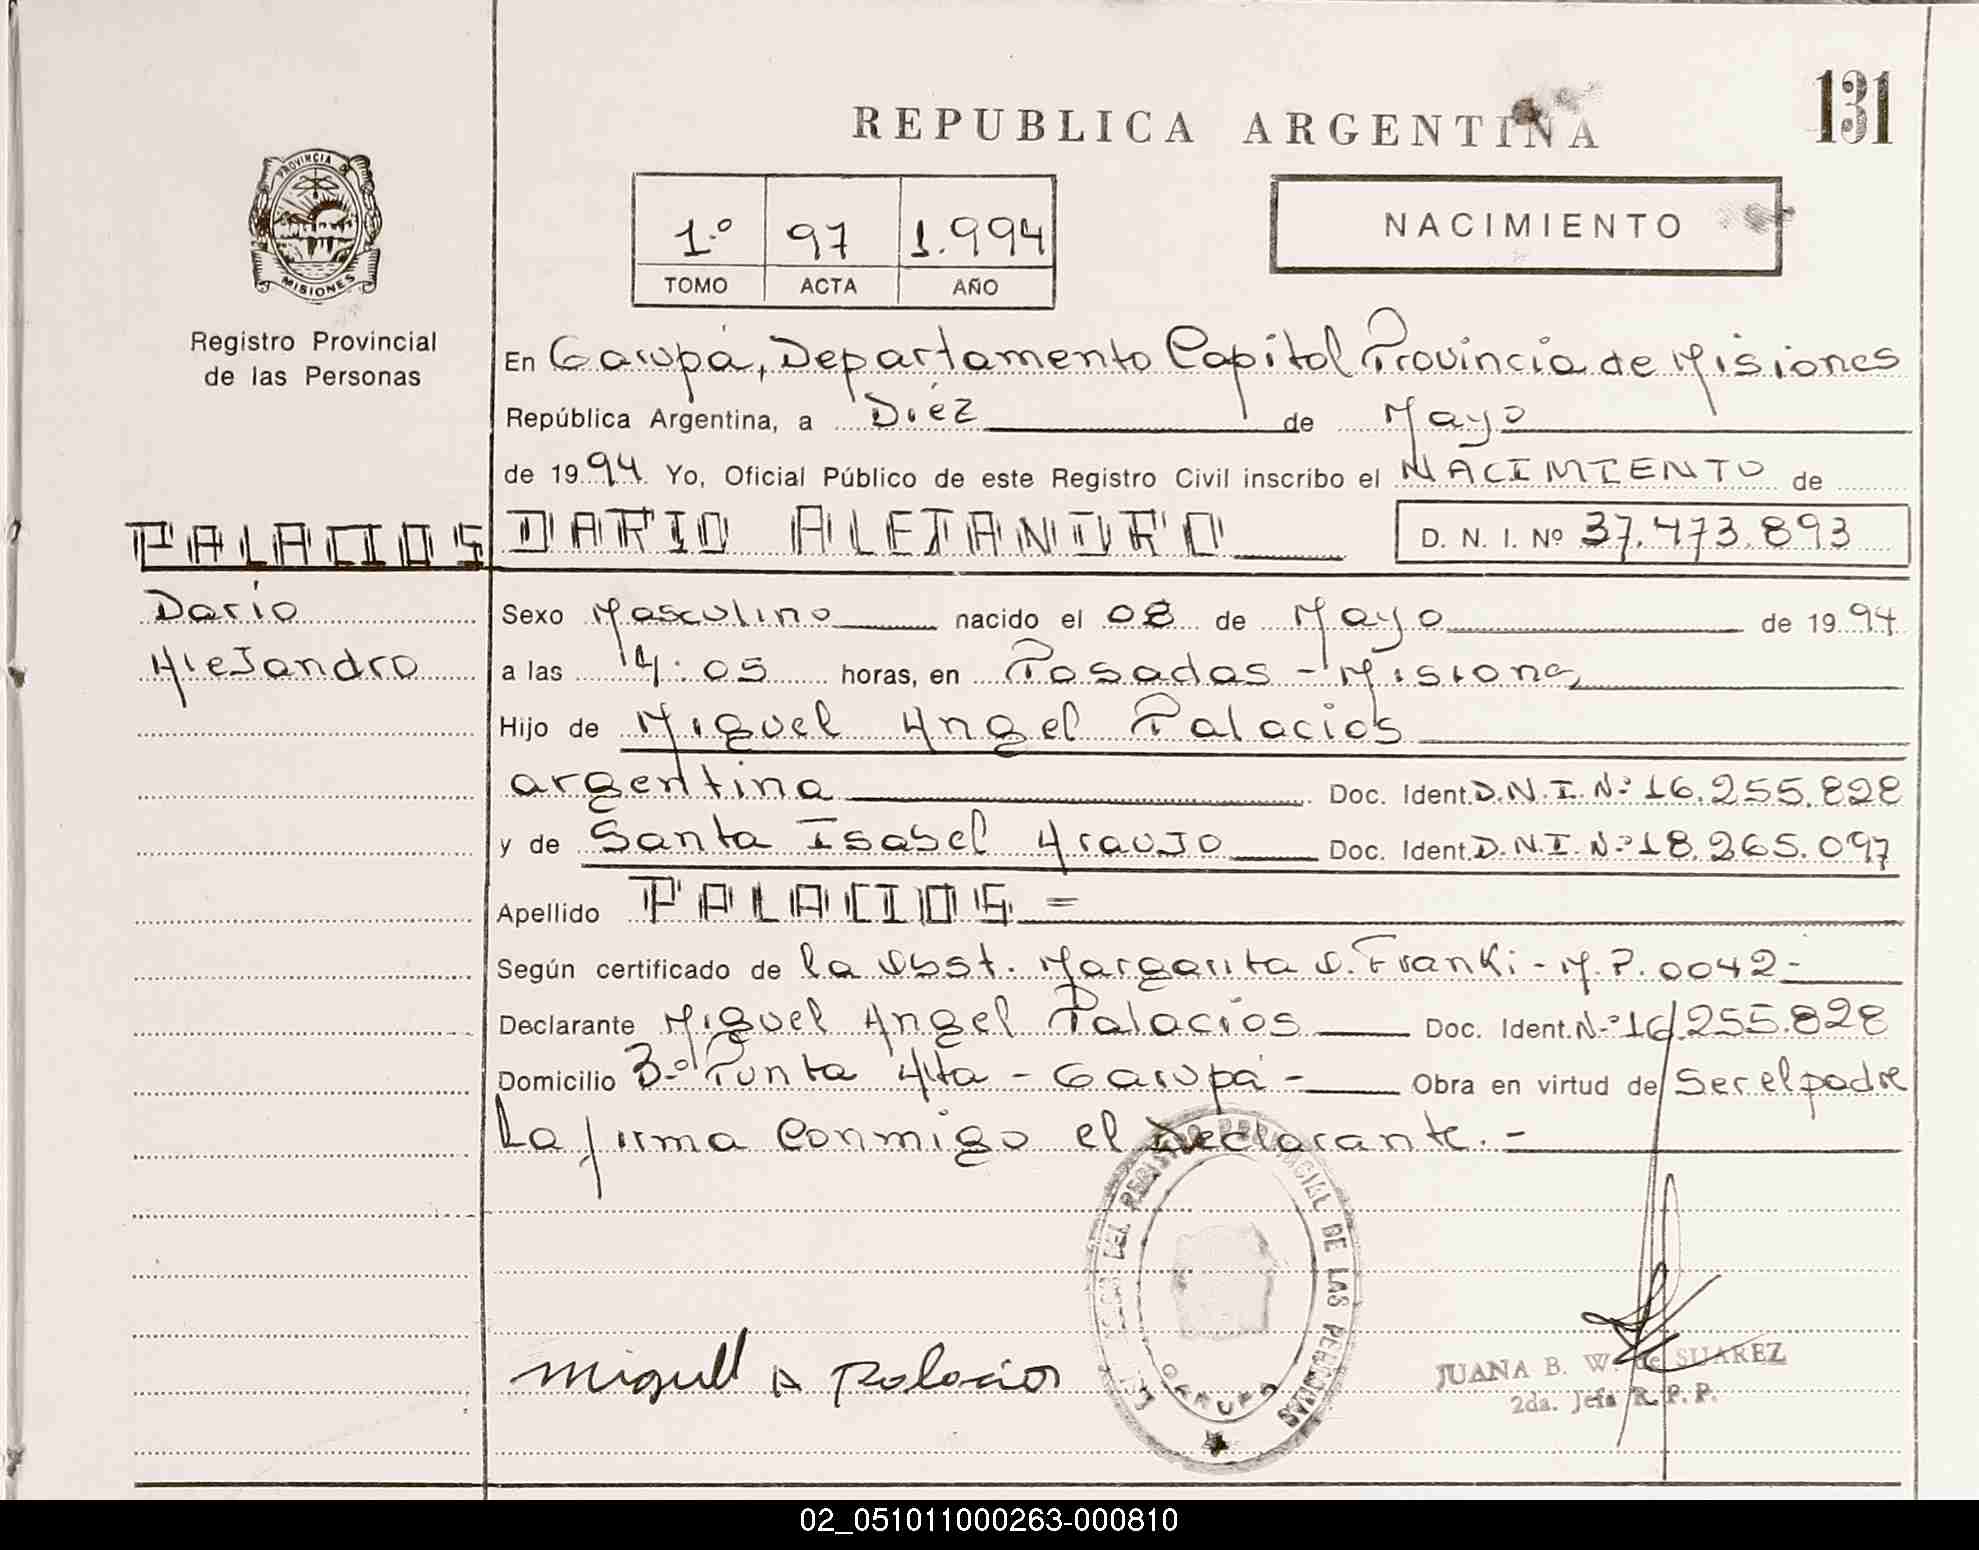 REPUBLICA ARGENTINA
131
PROVINCIA DE
MISIONES
Registro Provincial
de las Personas
1.º 97 1.994
TOMO ACTA AÑO
NACIMIENTO
En Garupá, Departamento Capital Provincia de Misiones
República Argentina, a Diez de Mayo
de 1994 Yo, Oficial Público de este Registro Civil inscribo el NACIMIENTO de
PALACIOS DARIO ALEJANDRO D. N. I. Nº 37.473.893
Darío
Alejandro
Sexo Masculino nacido el 08 de Mayo de 1994
a las 14:05 horas, en Posadas - Misiones
Hijo de Miguel Angel Palacios
argentina Doc. Ident. D.N.I. Nº 16.255.828
y de Santa Isabel Araujo Doc. Ident. D.N.I. Nº 18.265.097
Apellido PALACIOS =
Según certificado de la Obst. Margarita S. Franki - M.P. 0042-
Declarante Miguel Angel Palacios Doc. Ident. Nº 16.255.828
Domicilio Bº Punta Alta - Garupá - Obra en virtud de Ser el padre
La firma Conmigo el Declarante. -
DEL REGISTRO PROVINCIAL DE LAS PERSONAS
GARUPA
Miguel A Palacios
JUANA B. W. de SUAREZ
2da. Jefa R. P. P.
02_051011000263-000810